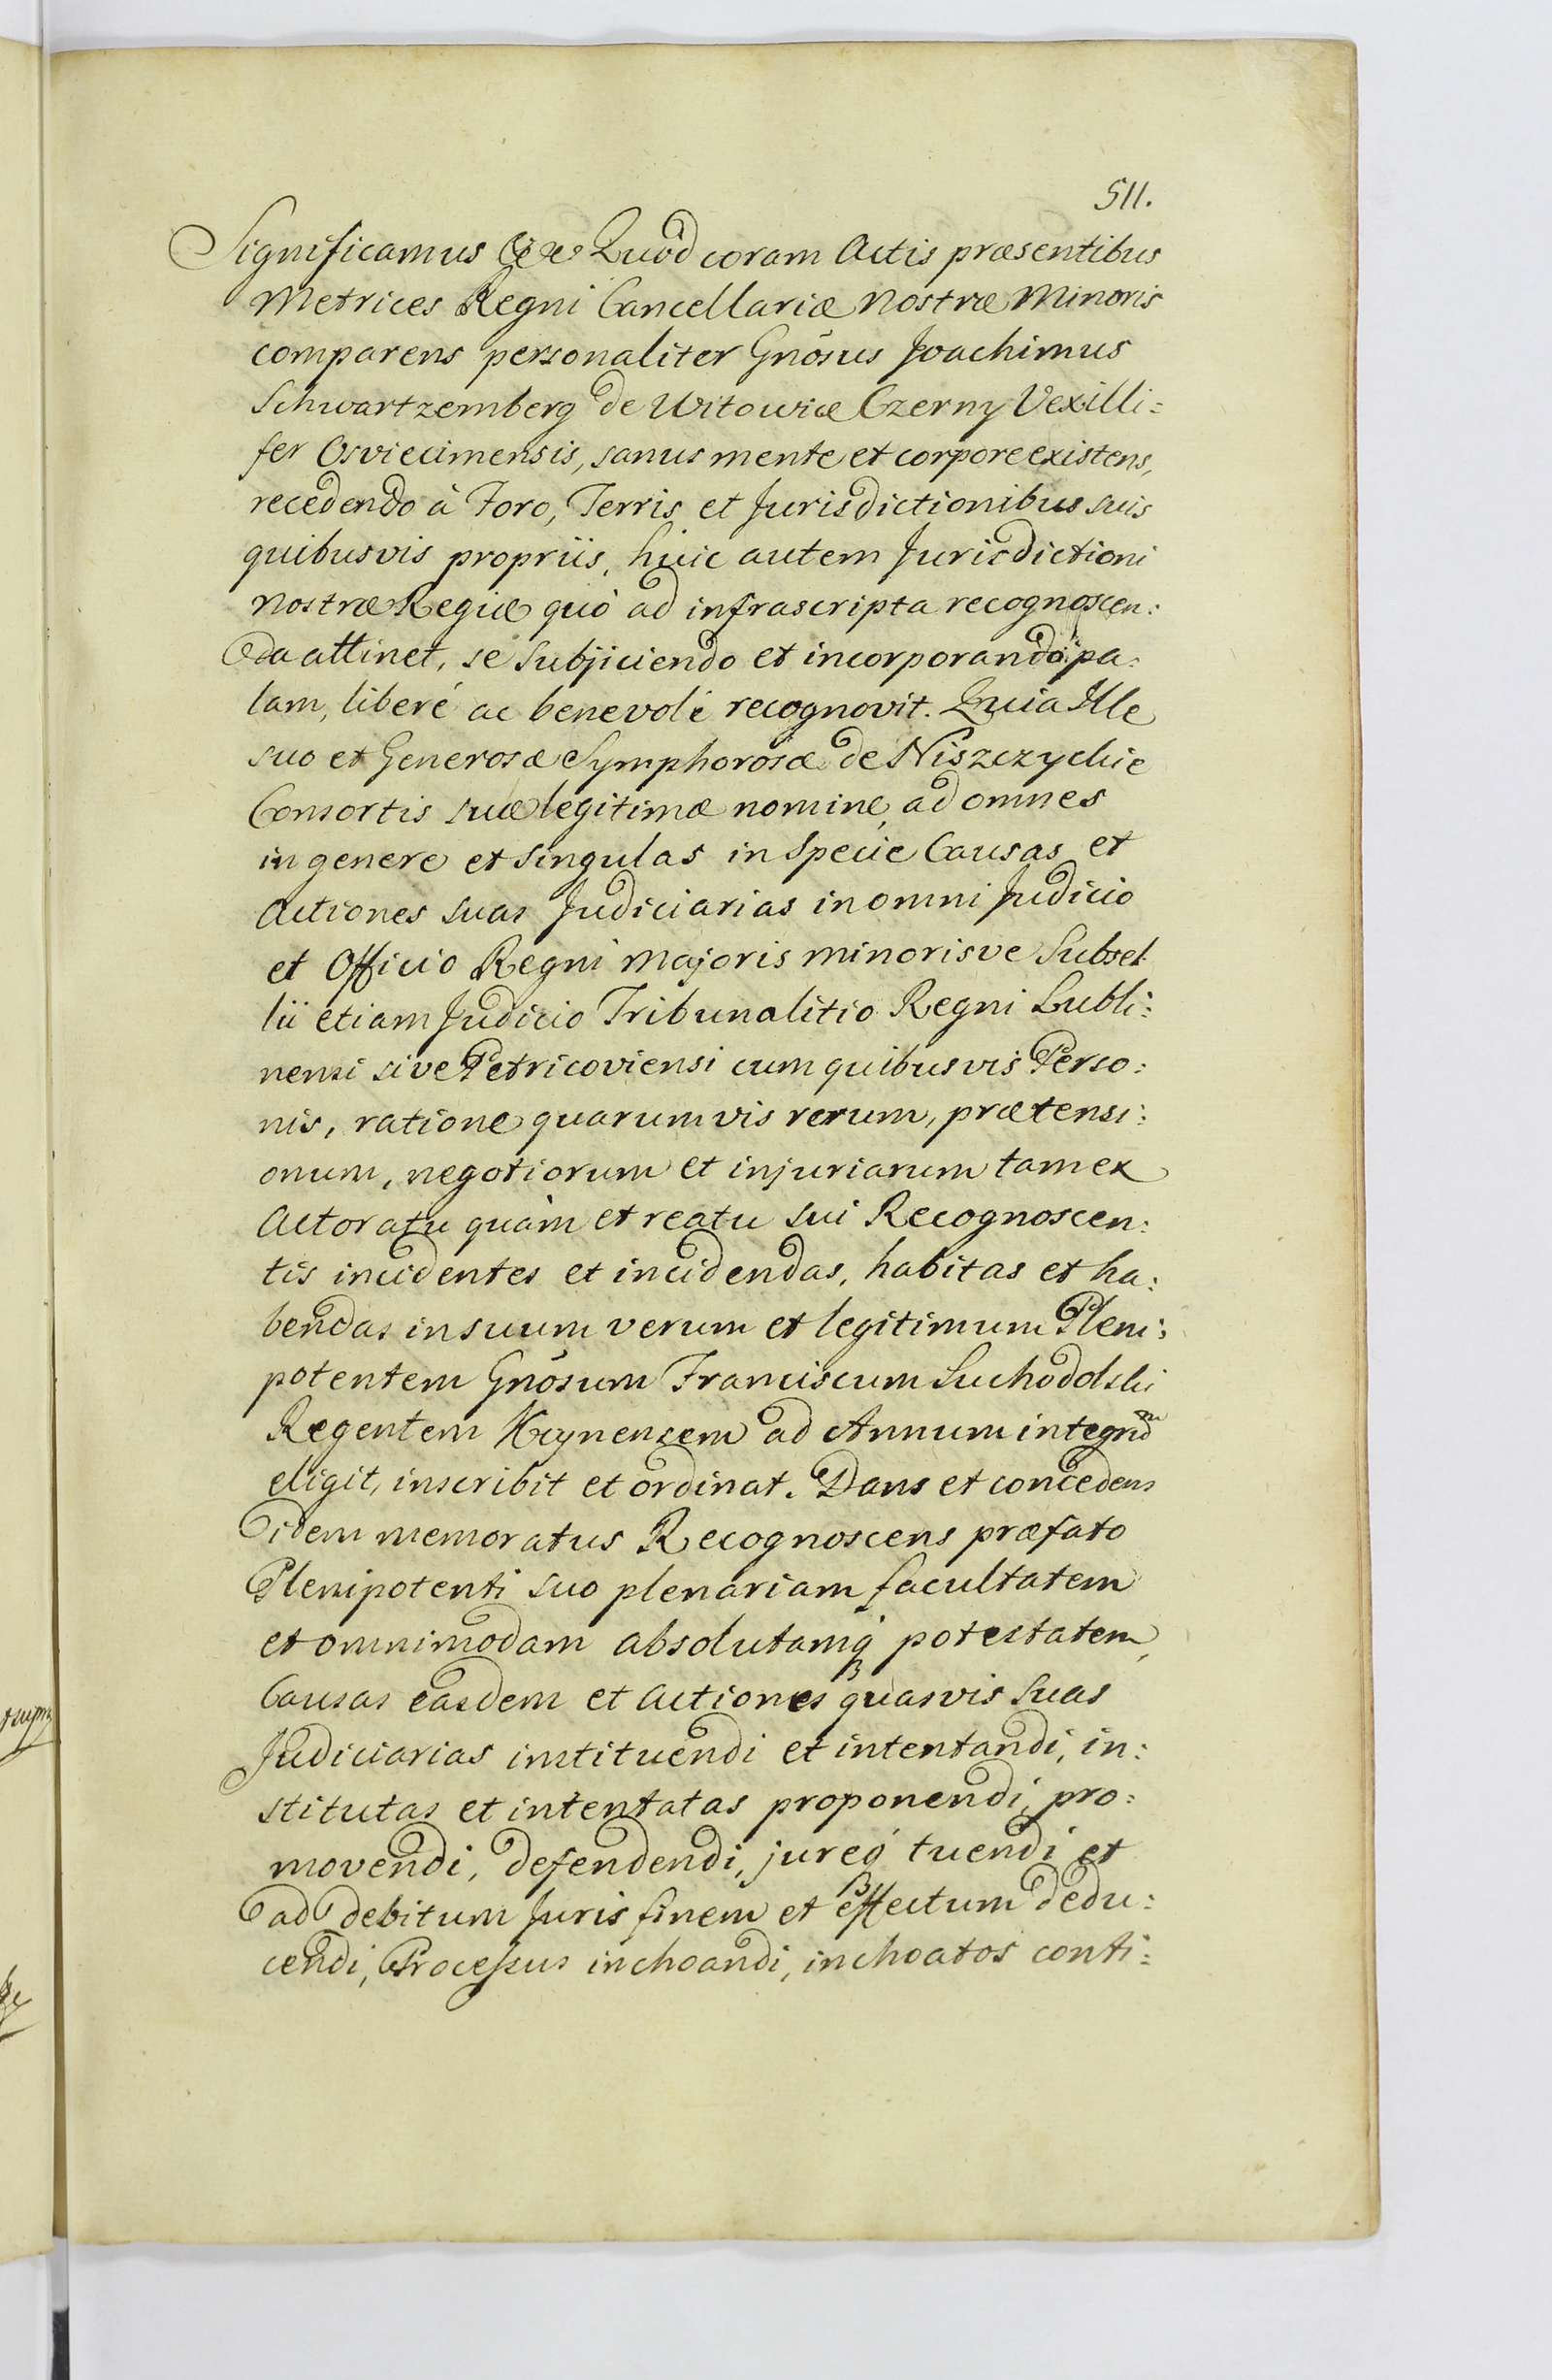 511.
Significamus &c &c Quòd coram Actis præsentibus
Metrices Regni Cancellariæ Nostræ Minoris
comparens personaliter Gnõsus Joachimus
Schwartzemberg de Witowice Czerny Vexilli:
fer Osviecimensis, sanus mente et corpore existens,
recedendo à Foro, Terris et Jurisdictionibus suis
quibusvis propriis, huic autem Jurisdictioni
Nostræ Regiæ quò ad infrascripta recognoscen:
da attinet, se subjiciendo et incorporando pa:
lam, liberé ac benevolé recognovit. Quia Ille
suo et Generosæ Symphorosæ de Niszczyckie
Consortis suæ legitimæ nomine, ad omnes
in genere et singulas in specie Causas et
Actiones suas Judiciarias in omni Judicio
et Officio Regni majoris minorisve Subsel
lii etiam Judicio Tribunalitio Regni Lubli:
nensi sive Petricoviensi cum quibusvis Perso:
nis, ratione quarumvis rerum, prætensi:
onum, negotiorum et injuriarum tam ex
Actoratu quàm et reatu sui Recognoscen:
tis incidentes et incidendas, habitas et ha:
bendas in suum verum et legitimum Pleni:
potentem Gnõsum Franciscum Suchodolski
Regentem ad Annum integrũ
eligit, inscribit et ordinat. Dans et concedens
idem memoratus Recognoscens præfato
Plenipotenti suo plenariam facultatem
et omnimodam absolutamq́ potestatem,
Causas easdem et Actiones quasvis suas
Judiciarias instituendi et intentandi, in:
stitutas et intentatas proponendi, pro:
movendi, defendendi, jureq́ tuendi et
ad debitum Juris finem et effectum dedu:
cendi, Processus inchoandi, inchoatos conti: